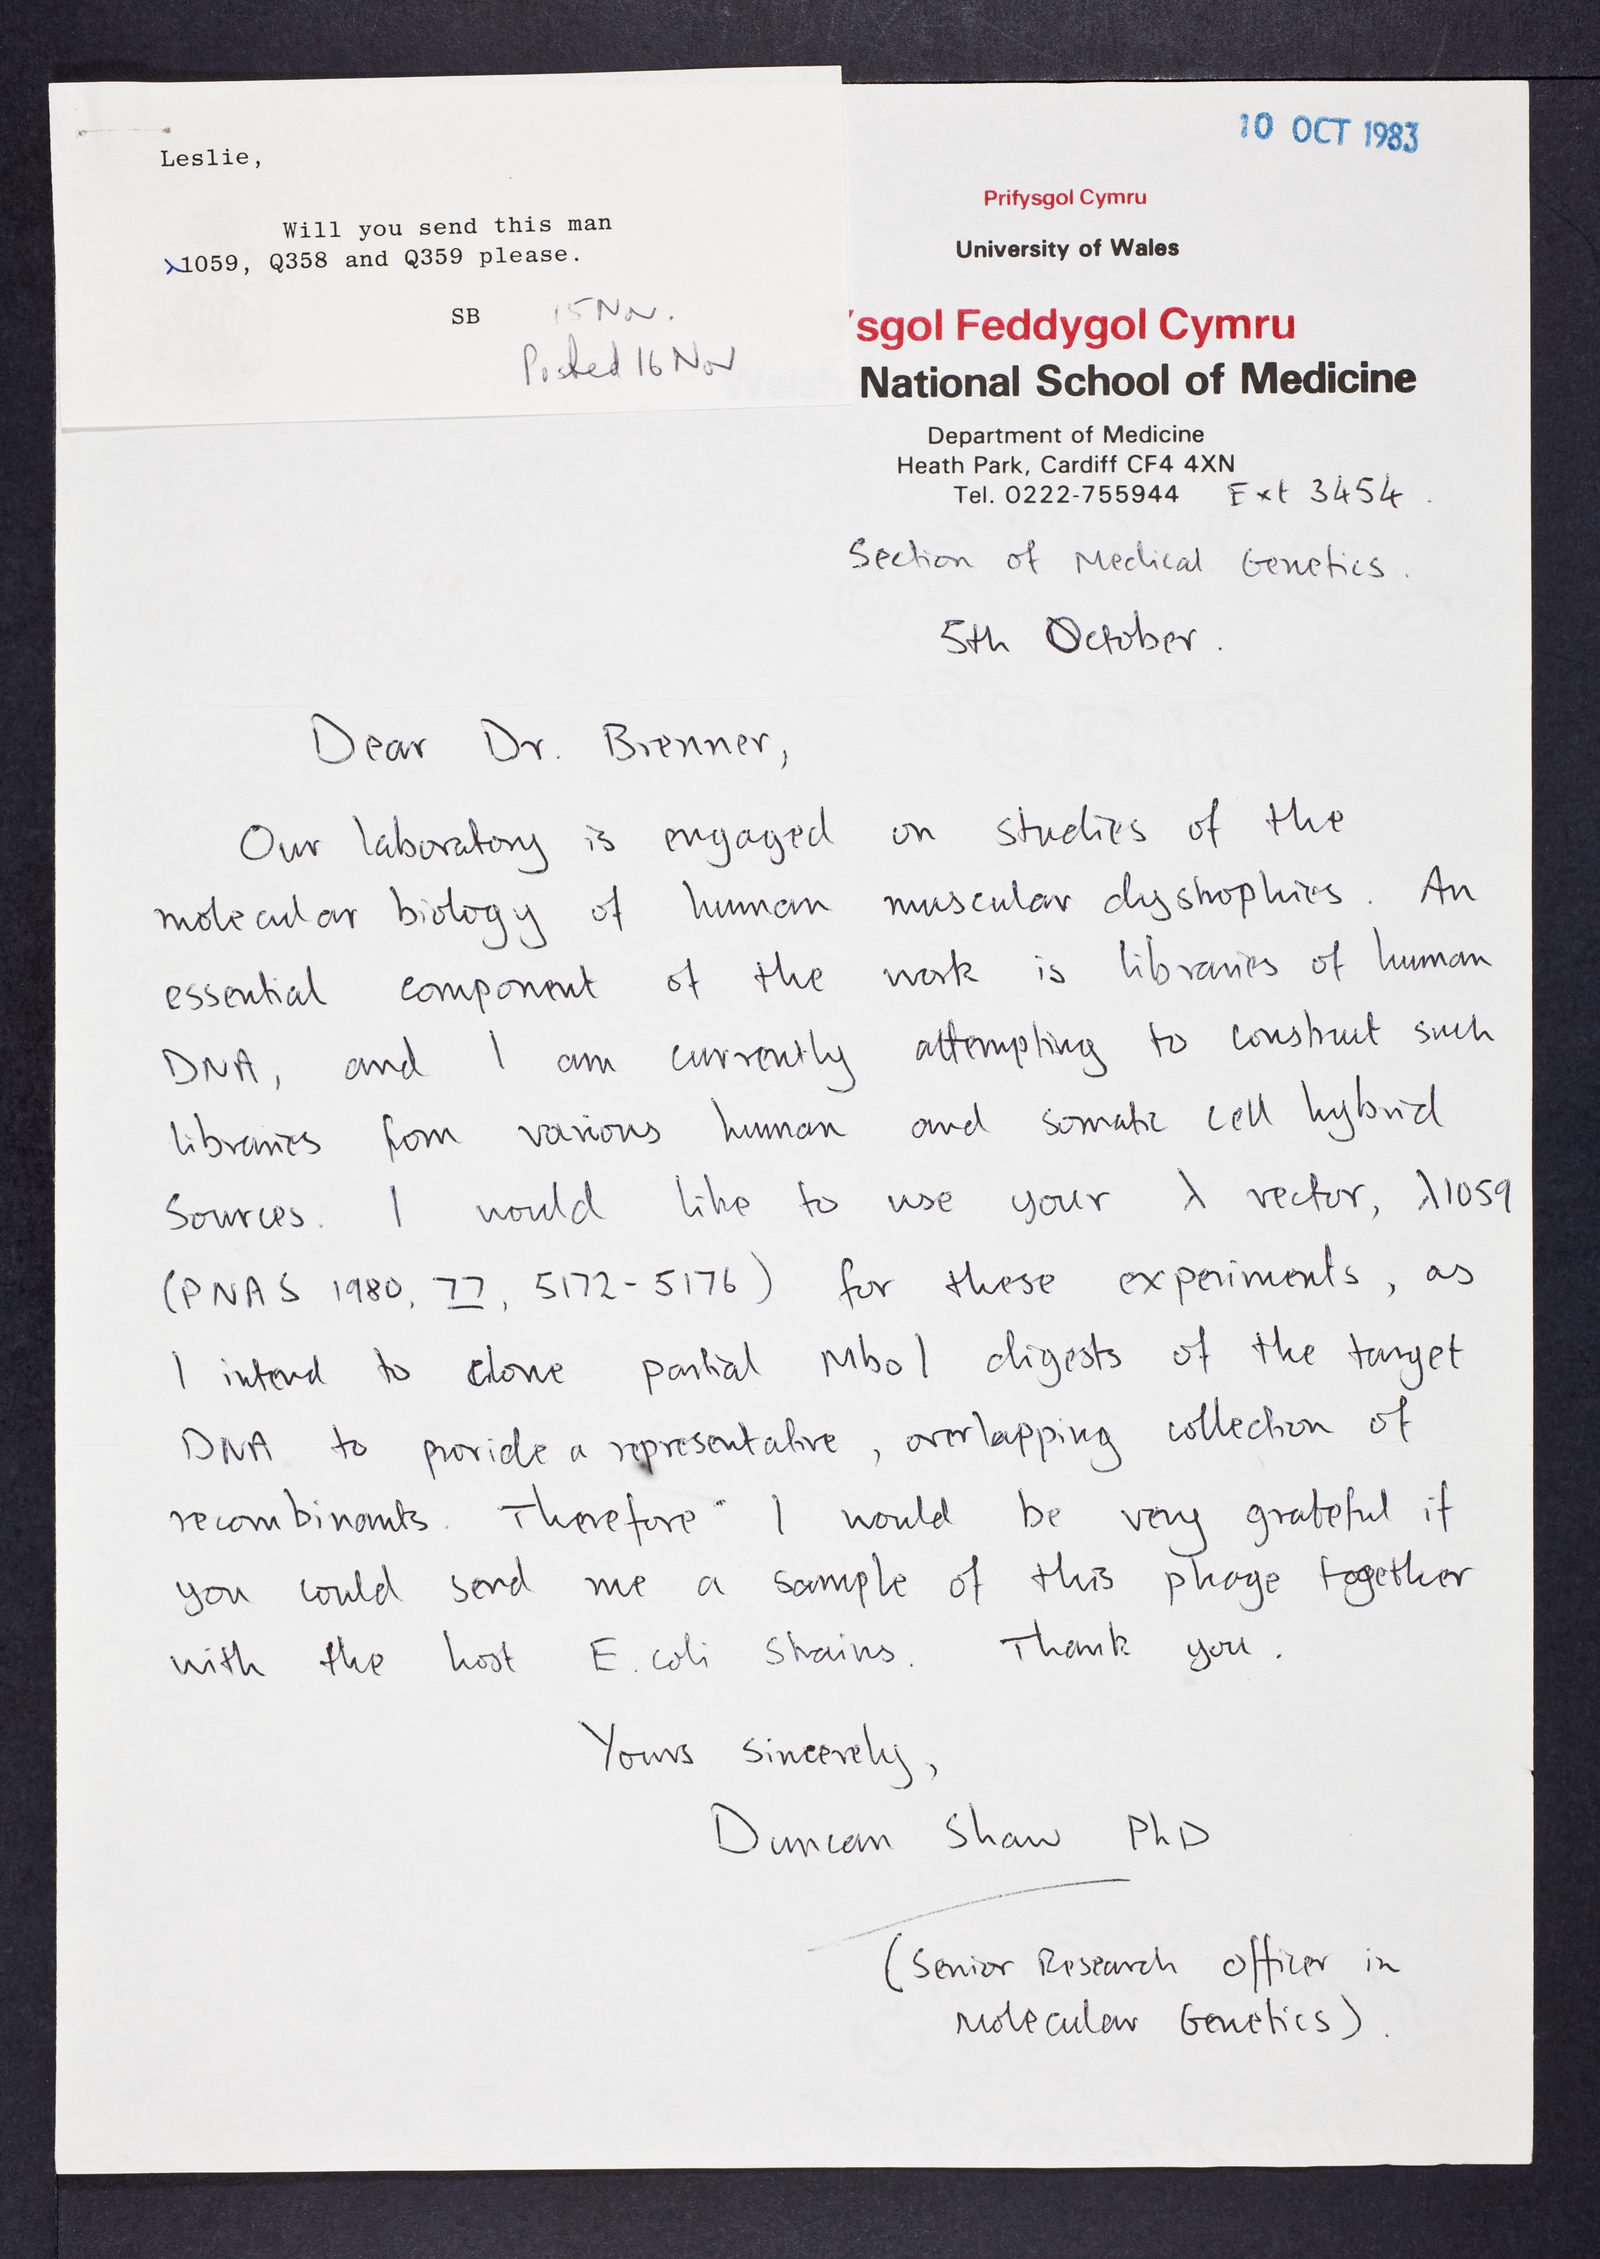 Leslie,
Will you send this man
λ1059, Q358 and Q359 please.
SB
15 Nov.
Posted 16 Nov
10 OCT 1983
Prifysgol Cymru
University of Wales
ysgol Feddygol Cymru
National School of Medicine
Department of Medicine
Heath Park, Cardiff CF4 4XN
Tel. 0222-755944 Ext 3454.
Section of Medical Genetics.
5th October.
Dear Dr. Brenner,
Our laboratory is engaged on studies of the
molecular biology of human muscular dystrophies. An
essential component of the work is libraries of human
DNA, and I am currently attempting to construct such
libraries from various human and somatic cell hybrid
sources. I would like to use your λ vector, λ1059
(PNAS 1980, 77, 5172-5176) for these experiments, as
I intend to clone partial Mbo I digests of the target
DNA to provide a representative, overlapping collection of
recombinants. Therefore I would be very grateful if
you could send me a sample of this phage together
with the host E. coli strains. Thank you.
Yours sincerely,
Duncan Shaw PhD
(Senior Research Officer in
Molecular Genetics).